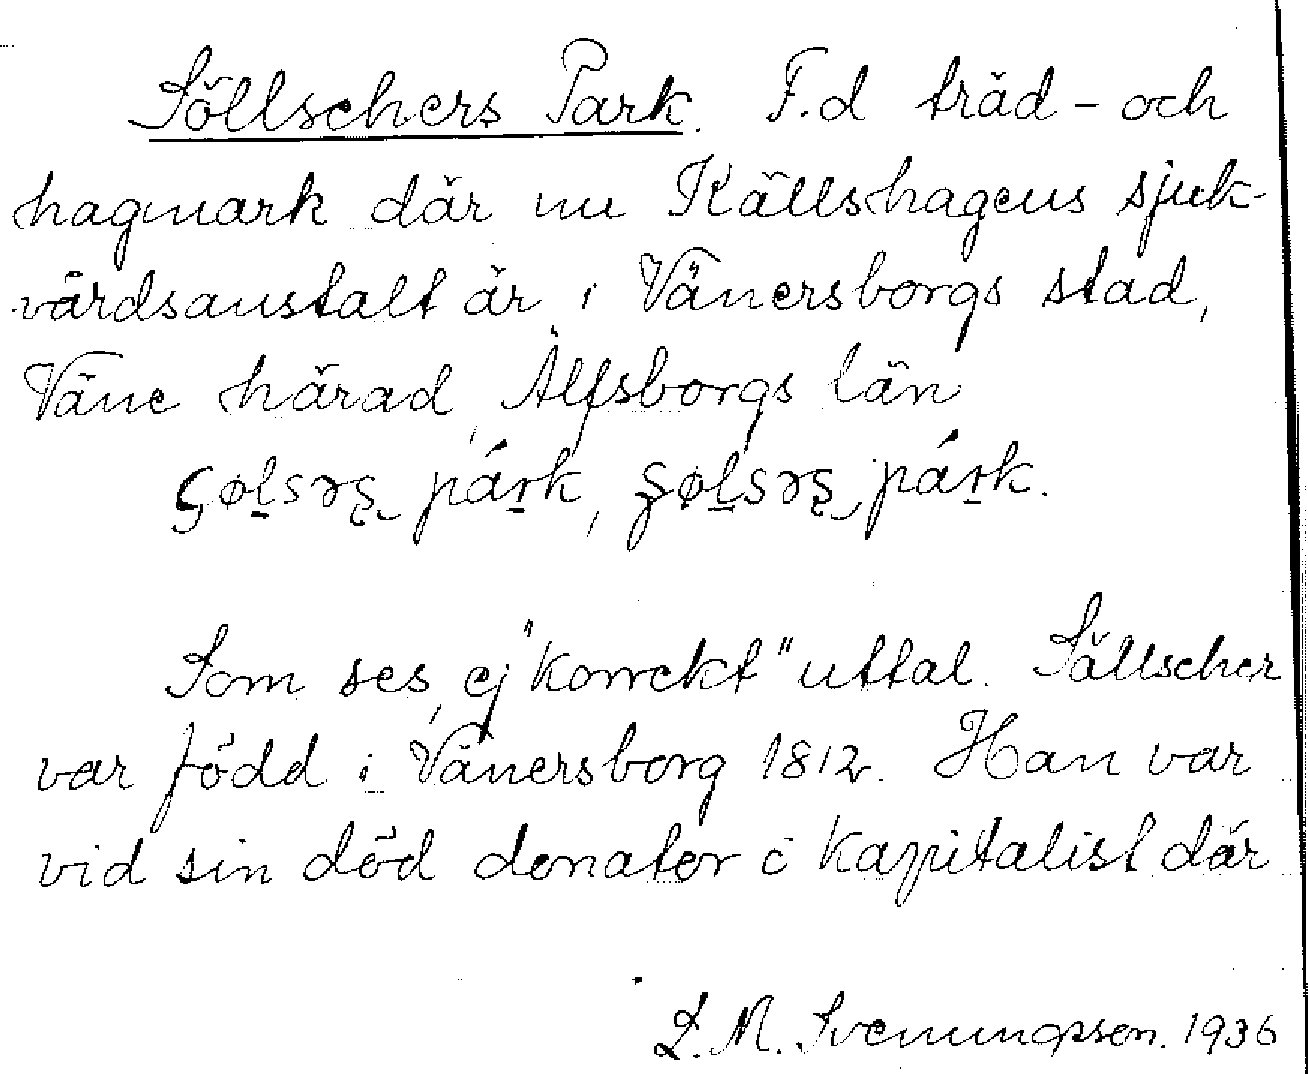 Söllschers Park. F.d träd- och
hagmark där nu Källshagens sjuk-
vårdsanstalt är i Vänersborgs stad,
Väne härad, Älfsborgs län
park, park.
Som ses, ej "korrekt" uttal. Sällscher
var född i Vänersborg 1812. Han var
vid sin död donator o kapitalist där
L. M. Svenungsson. 1936